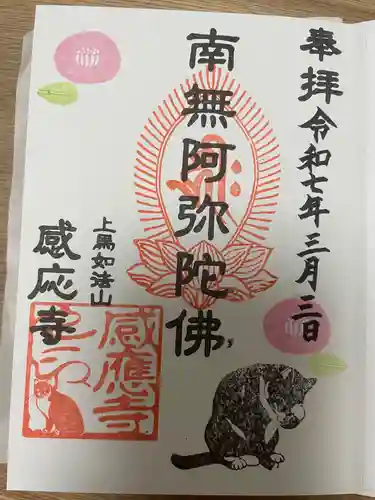 奉拝 令和七年三月三日
南無阿弥陀佛
上黒如法山
感応寺
感應寺